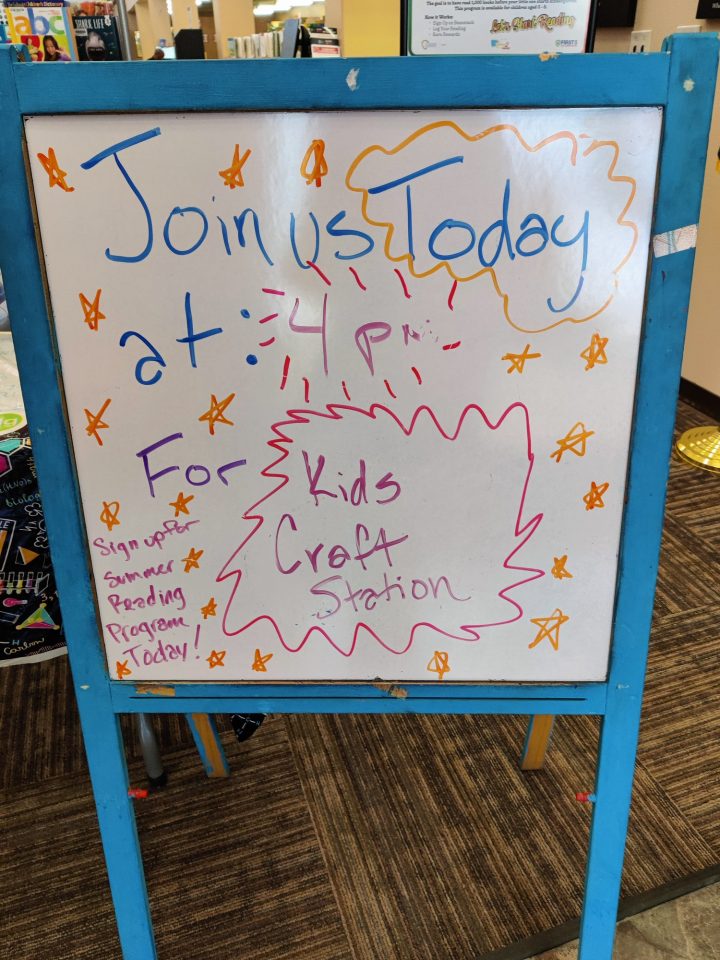 abc
The goal is to have read 1,000 books before your little one starts kindergarten
This program is available for children aged 0 - 5
How it Works:
Log Your Reading
Earn Rewards
Let's Start Reading
FIRST 5
Join us Today
at: 4 pm
For
Kids
Craft
Station
Sign up for
Summer
Reading
Program
Today!